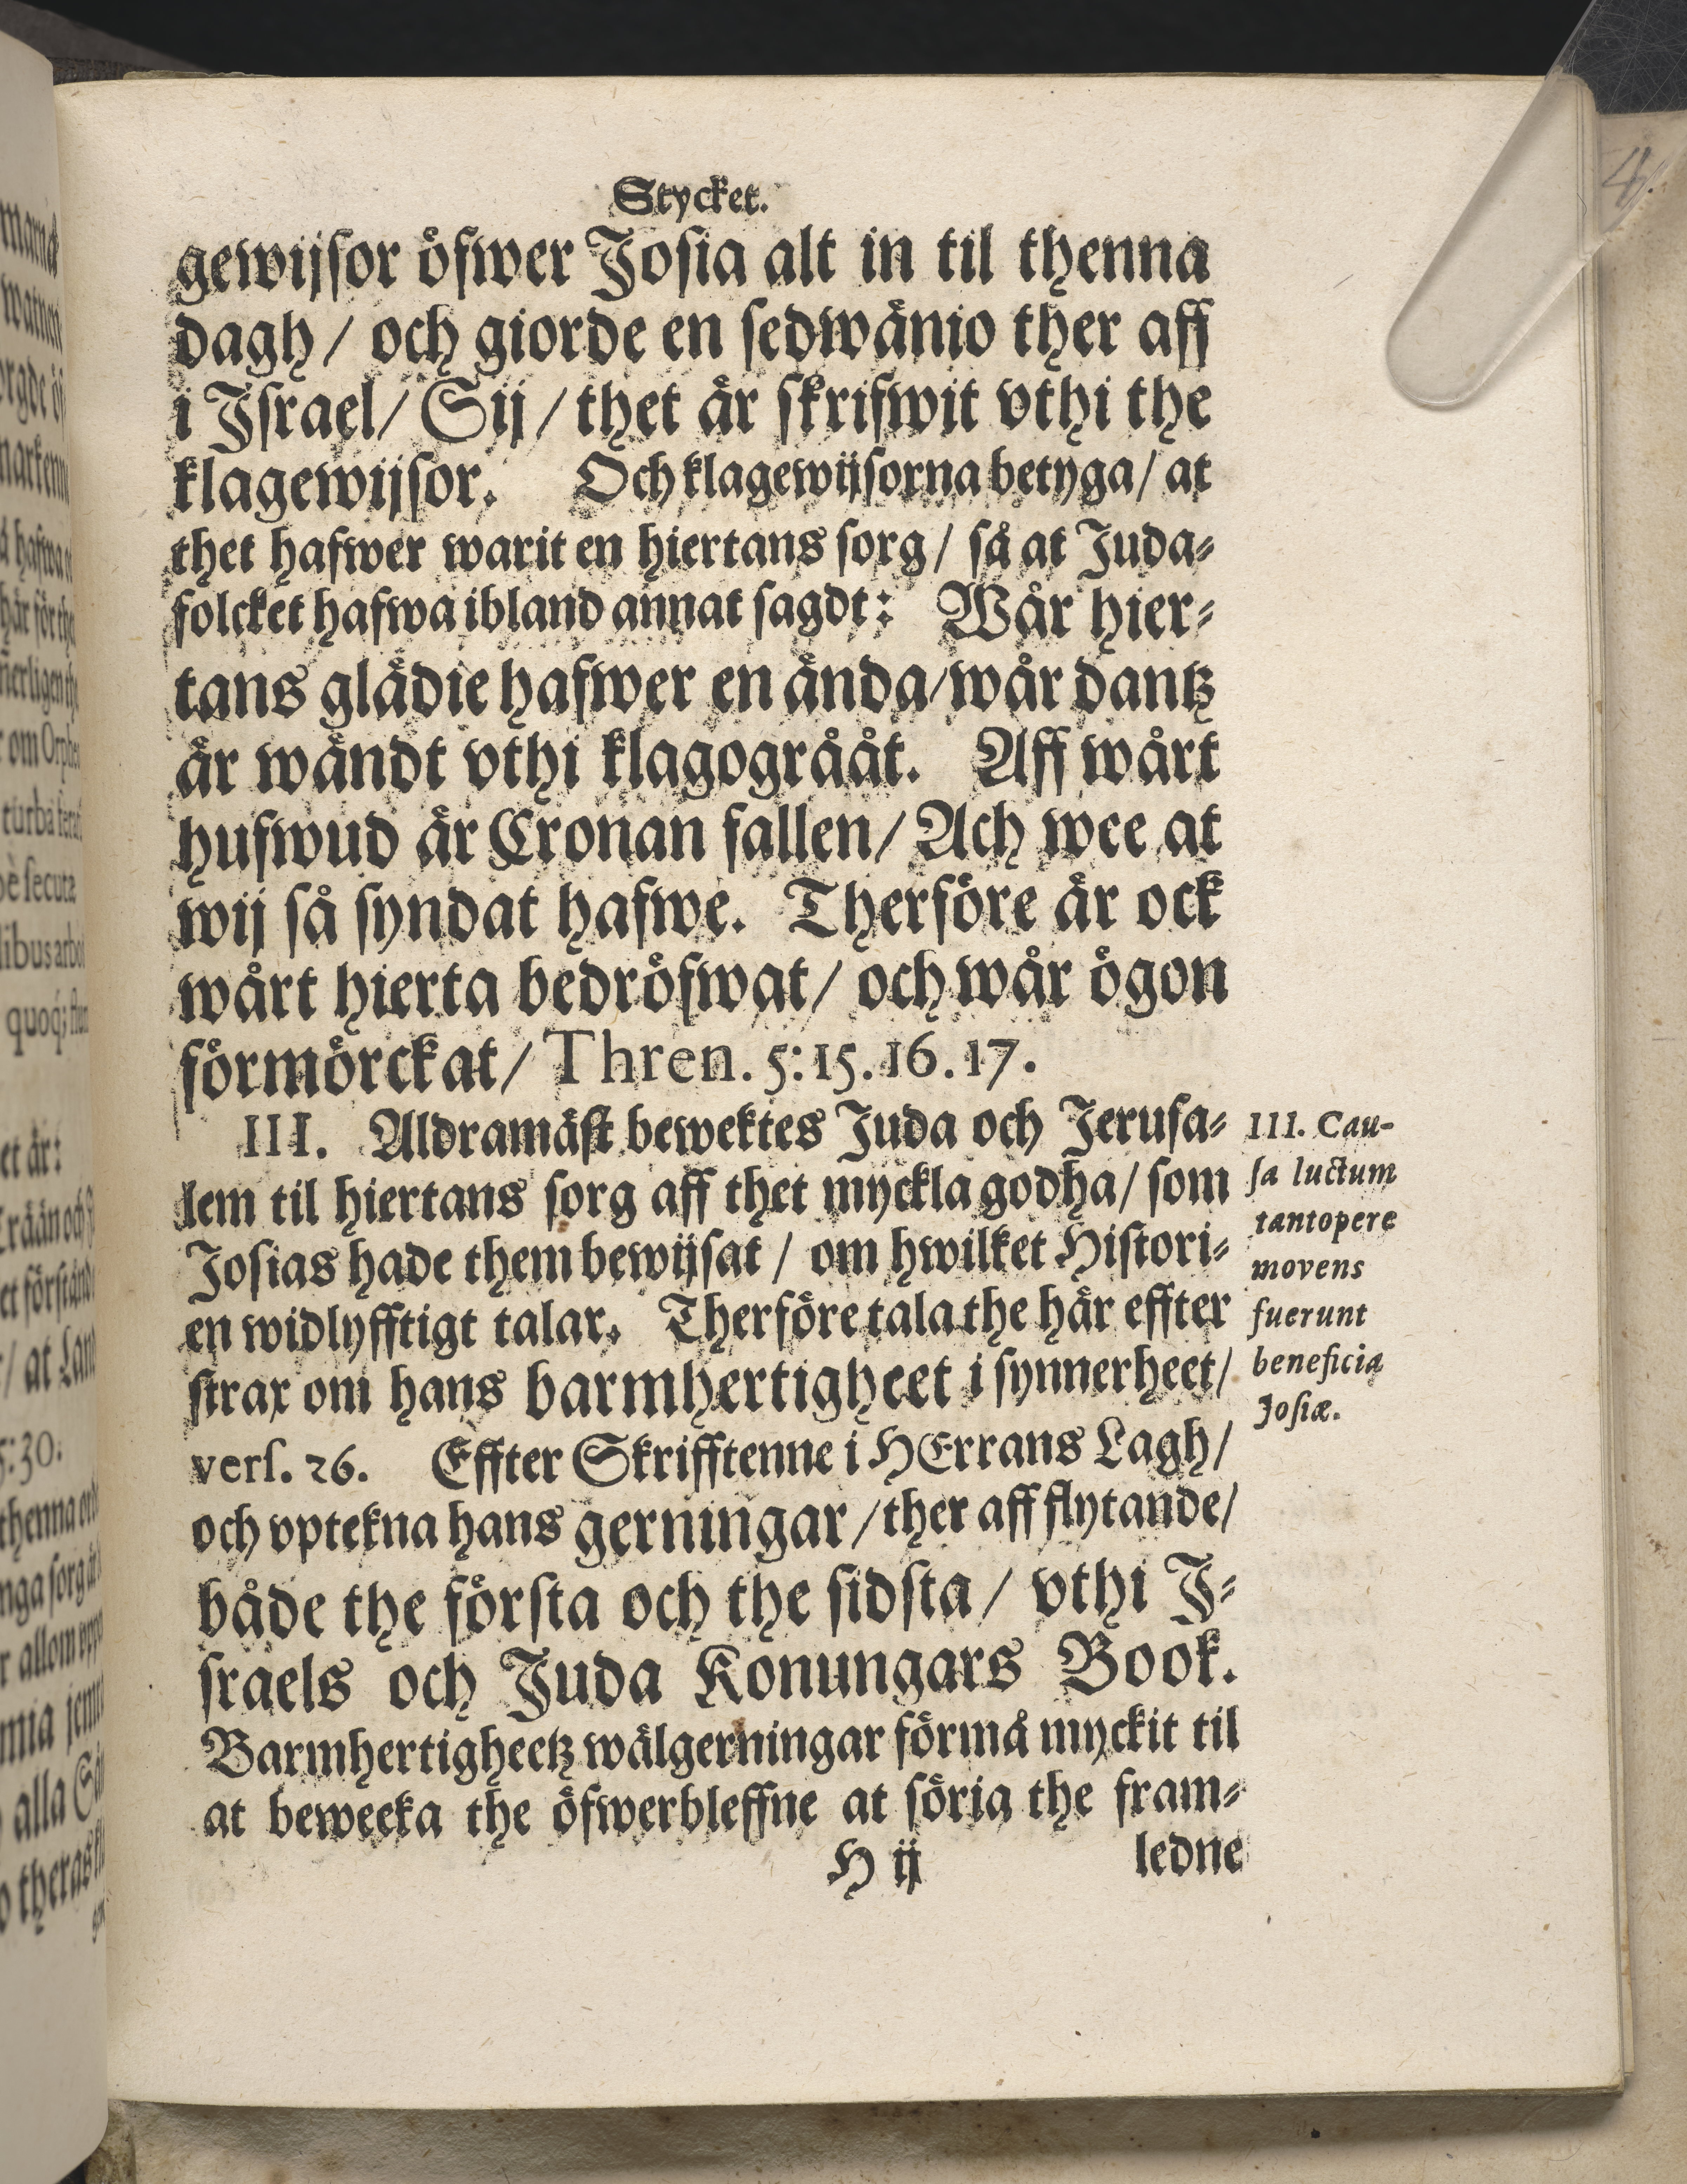 Stycket.
gewijſor öfwer Joſia alt in til thenna
dagh / och giorde en ſedwänio ther aff
i Jſrael / Sij / thet är ſkrifwit vthi the
klagewijſor. Och klagewijſorna betyga / at
thet hafwer warit en hiertans ſorg / ſå at Juda⸗
folcket hafwa ibland annat ſagdt: Wår hier⸗
tans glädie hafwer en ända / wår dantz
är wändt vthi klagogrååt. Aff wårt
hufwud är Cronan fallen / Ach wee at
wij ſå ſyndat hafwe. Therföre är ock
wårt hierta bedröfwat / och wår ögon
förmörckat / Thren. 5:15.16.17.
III. Aldramäſt bewektes Juda och Jeruſa⸗
lem til hiertans ſorg aff thet myckla godha / ſom
Joſias hade them bewijſat / om hwilket Hiſtori⸗
en widlyfftigt talar. Therföre tala the här effter
ſtrax om hans barmhertigheet i ſynnerheet /
verſ. 26. Effter Skrifftenne i HErrans Lagh /
och vptekna hans gerningar / ther aff flytande /
både the förſta och the ſidſta / vthi J⸗
ſraels och Juda Konungars Book.
Barmhertigheetz wälgerningar förmå myckit til
at beweeka the öfwerbleffne at ſöria the fram⸗
H ij ledne
III. Cau-
ſa luctum
tantopere
movens
fuerunt
beneficia
Joſiæ.